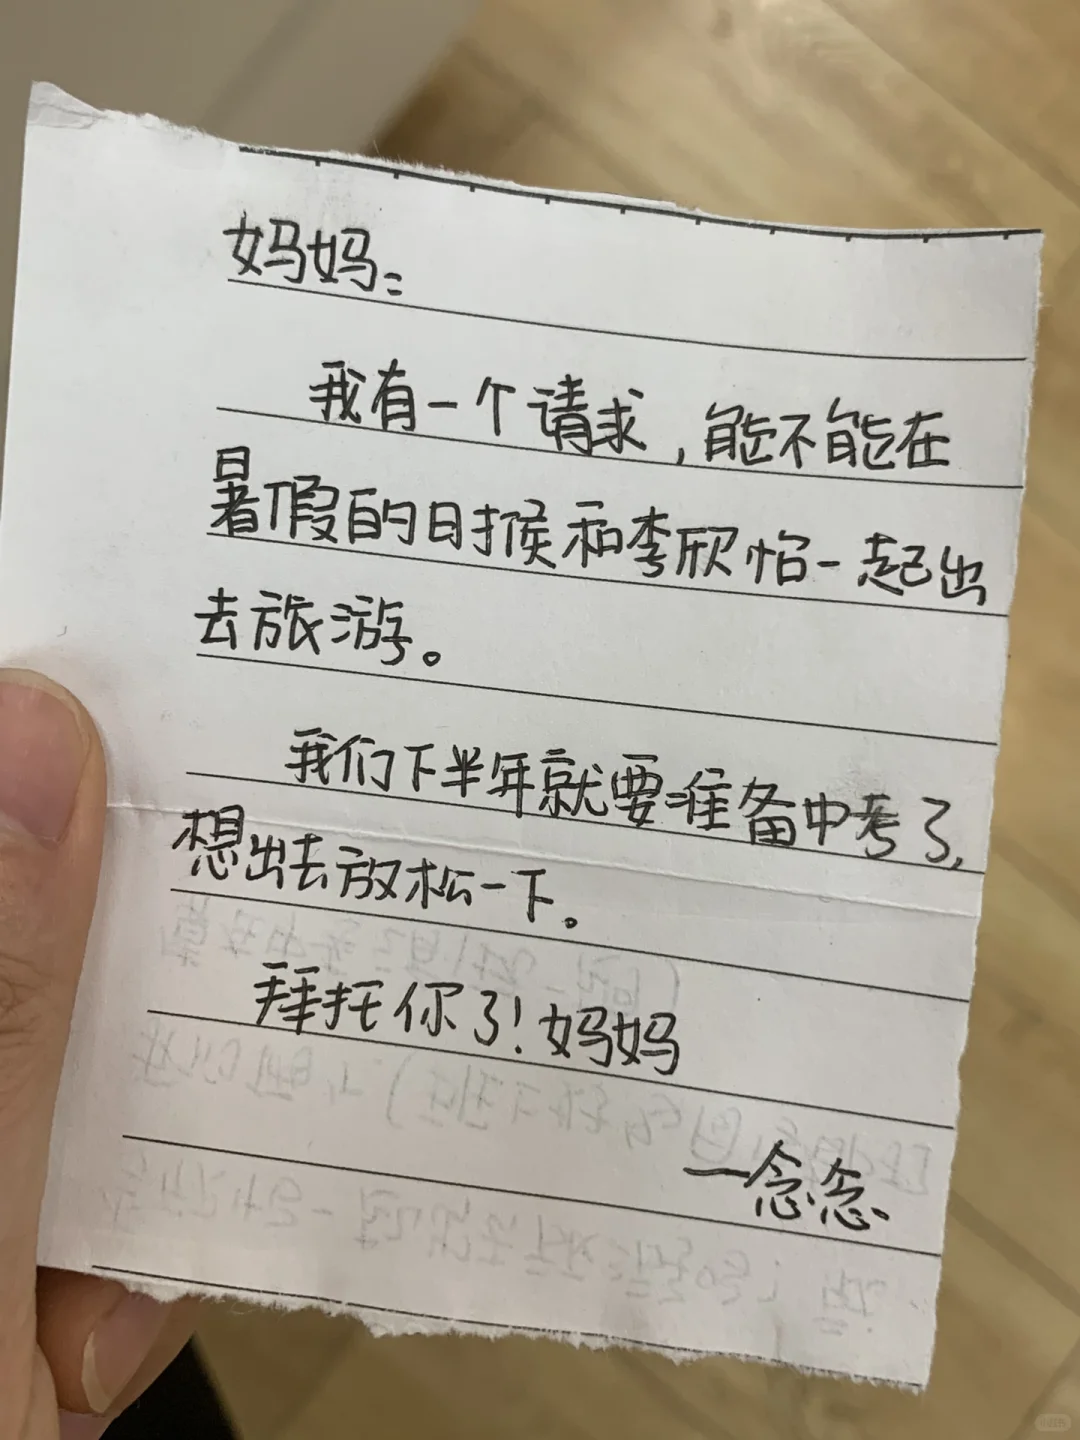 妈妈：
我有一个请求，能不能在
暑假的时候和李欣怡一起出
去旅游。
我们下半年就要准备中考了，
想出去放松一下。
拜托你了！妈妈
—念念.